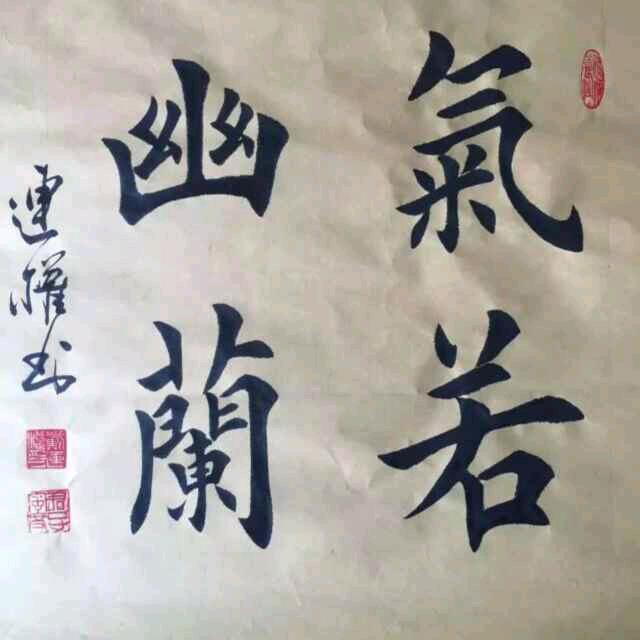 氣若
幽蘭
連權書